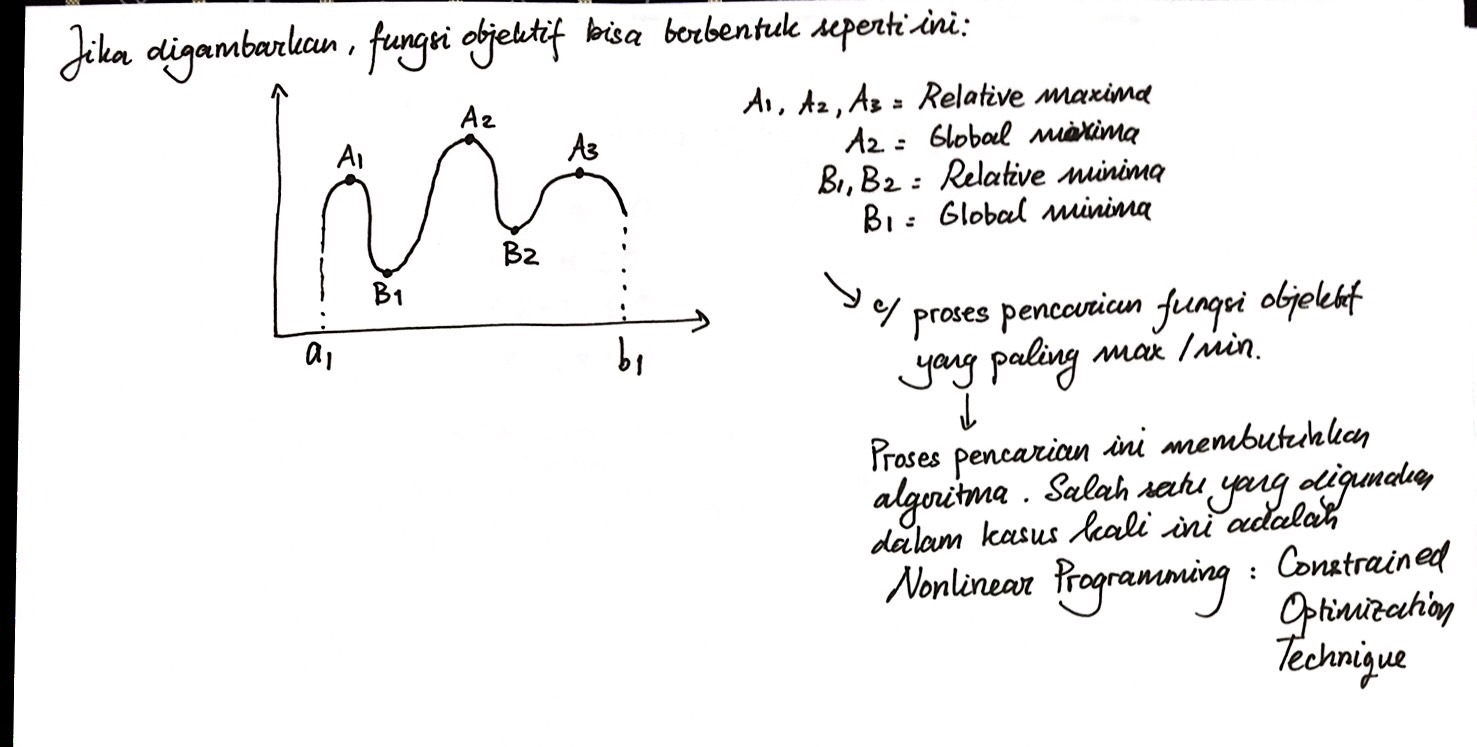 Jika digambarkan, fungsi objektif bisa berbentuk seperti ini:
A1
A2
A3
B1
B2
a1
b1
A1, A2, A3 = Relative maxima
A2 = Global maxima
B1, B2 = Relative minima
B1 = Global minima
↘ c/ proses pencarian fungsi objektif
yang paling max / min.
↓
Proses pencarian ini membutuhkan
algoritma. Salah satu yang digunakan
dalam kasus kali ini adalah
Nonlinear Programming : Constrained
Optimization
Technique